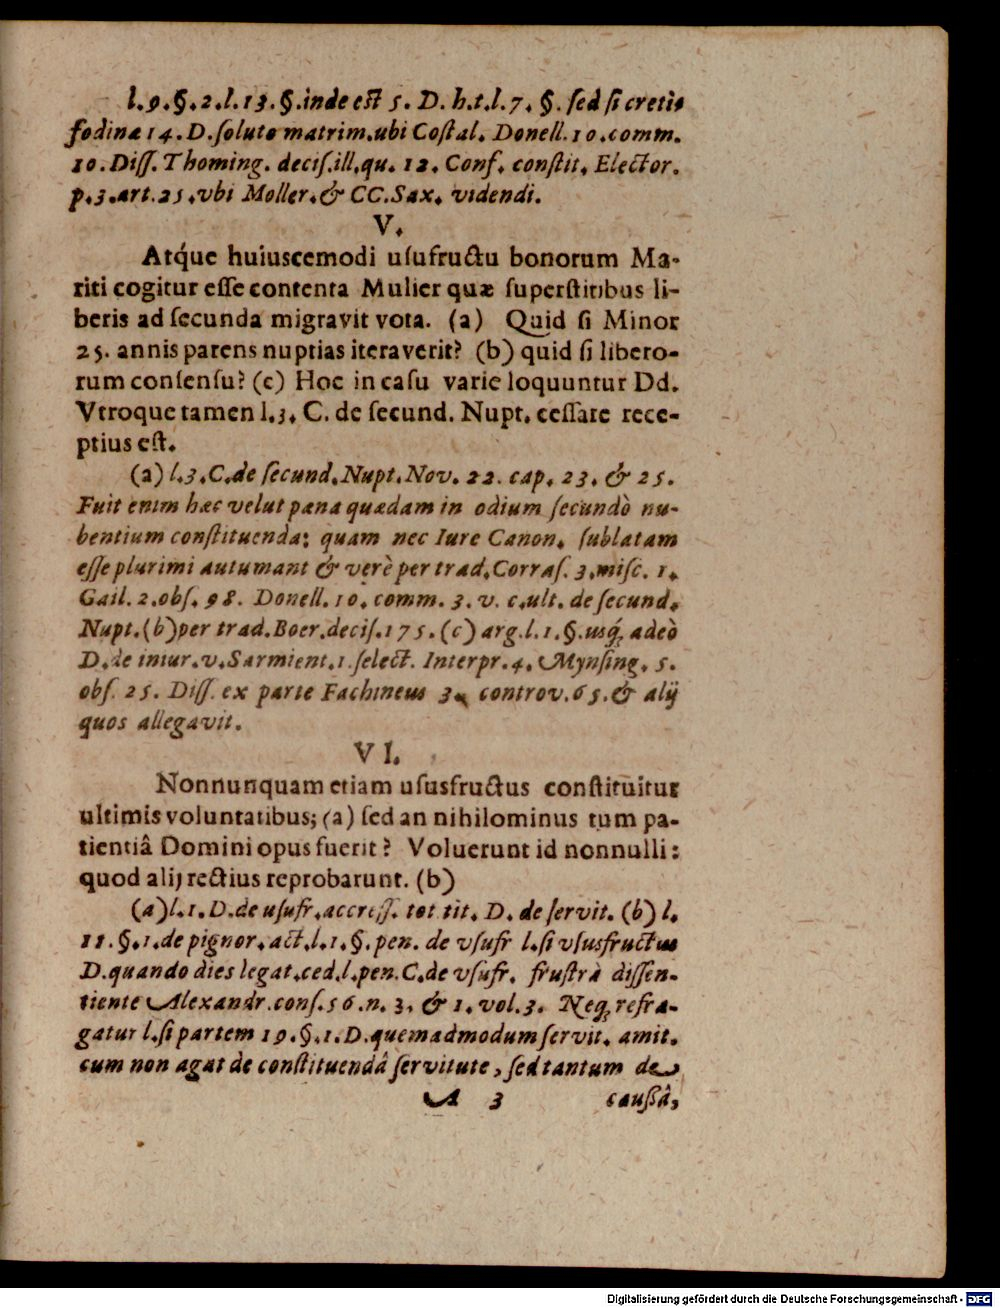 l.9.§.2.l.13.§.inde est 5. D. h.t.l.7. §. sed si cretis
fodinæ 14. D. soluto matrim.ubi Costal. Donell. 10.comm.
10. Diss. Thoming. decis.ill.qu. 12. Conf. constit. Elector.
p.3.art.25.vbi Moller.& CC.Sax. videndi.
V.
Atq́ue huiuscemodi usufructu bonorum Ma-
riti cogitur esse contenta Mulier quæ superstitibus li-
beris ad secunda migravit vota. (a) Quid si Minor
25. annis parens nuptias iteraverit? (b) quid si libero-
rum consensu? (c) Hoc in casu varie loquuntur Dd.
Vtroque tamen l.3. C. de secund. Nupt. cessare rece-
ptius est.
(a) l.3.C.de secund.Nupt.Nov. 22. cap. 23. & 25.
Fuit enim hæc velut pæna quædam in odium secundò nu-
bentium constituenda: quam nec Iure Canon. sublatam
esse plurimi autumant & verè per trad.Corras. 3.misc. 1.
Gail. 2.obs. 98. Donell. 10. comm. 3. v. c.ult. de secund.
Nupt.(b)per trad.Boer.decis.175.(c) arg.l.1.§.usq́; adeò
D.de iniur.v.Sarmient.1.select. Interpr.4. Mynsing. 5.
obs. 25. Diss. ex parte Fachineus 3. controv.65.& alij
quos allegavit.
VI.
Nonnunquam etiam ususfructus constituitur
ultimis voluntatibus; (a) sed an nihilominus tum pa-
tientiâ Domini opus fuerit? Voluerunt id nonnulli:
quod alij rectius reprobarunt. (b)
(a)l.1.D.de usufr.accresc. tot tit. D. de servit. (b) l.
11.§.1.de pignor.act.l.1.§.pen. de vsufr l.si vsusfructus
D.quando dies legat.ced.l.pen.C.de vsufr. frustrà dissen-
tiente Alexandr.cons.56.n. 3. & 1. vol.3. Neq; refra-
gatur l.si partem 10.§.1.D.quemadmodum servit. amit.
cum non agat de constituendâ servitute, sed tantum de
A 3 caussâ,
Digitalisierung gefördert durch die Deutsche Forschungsgemeinschaft - DFG